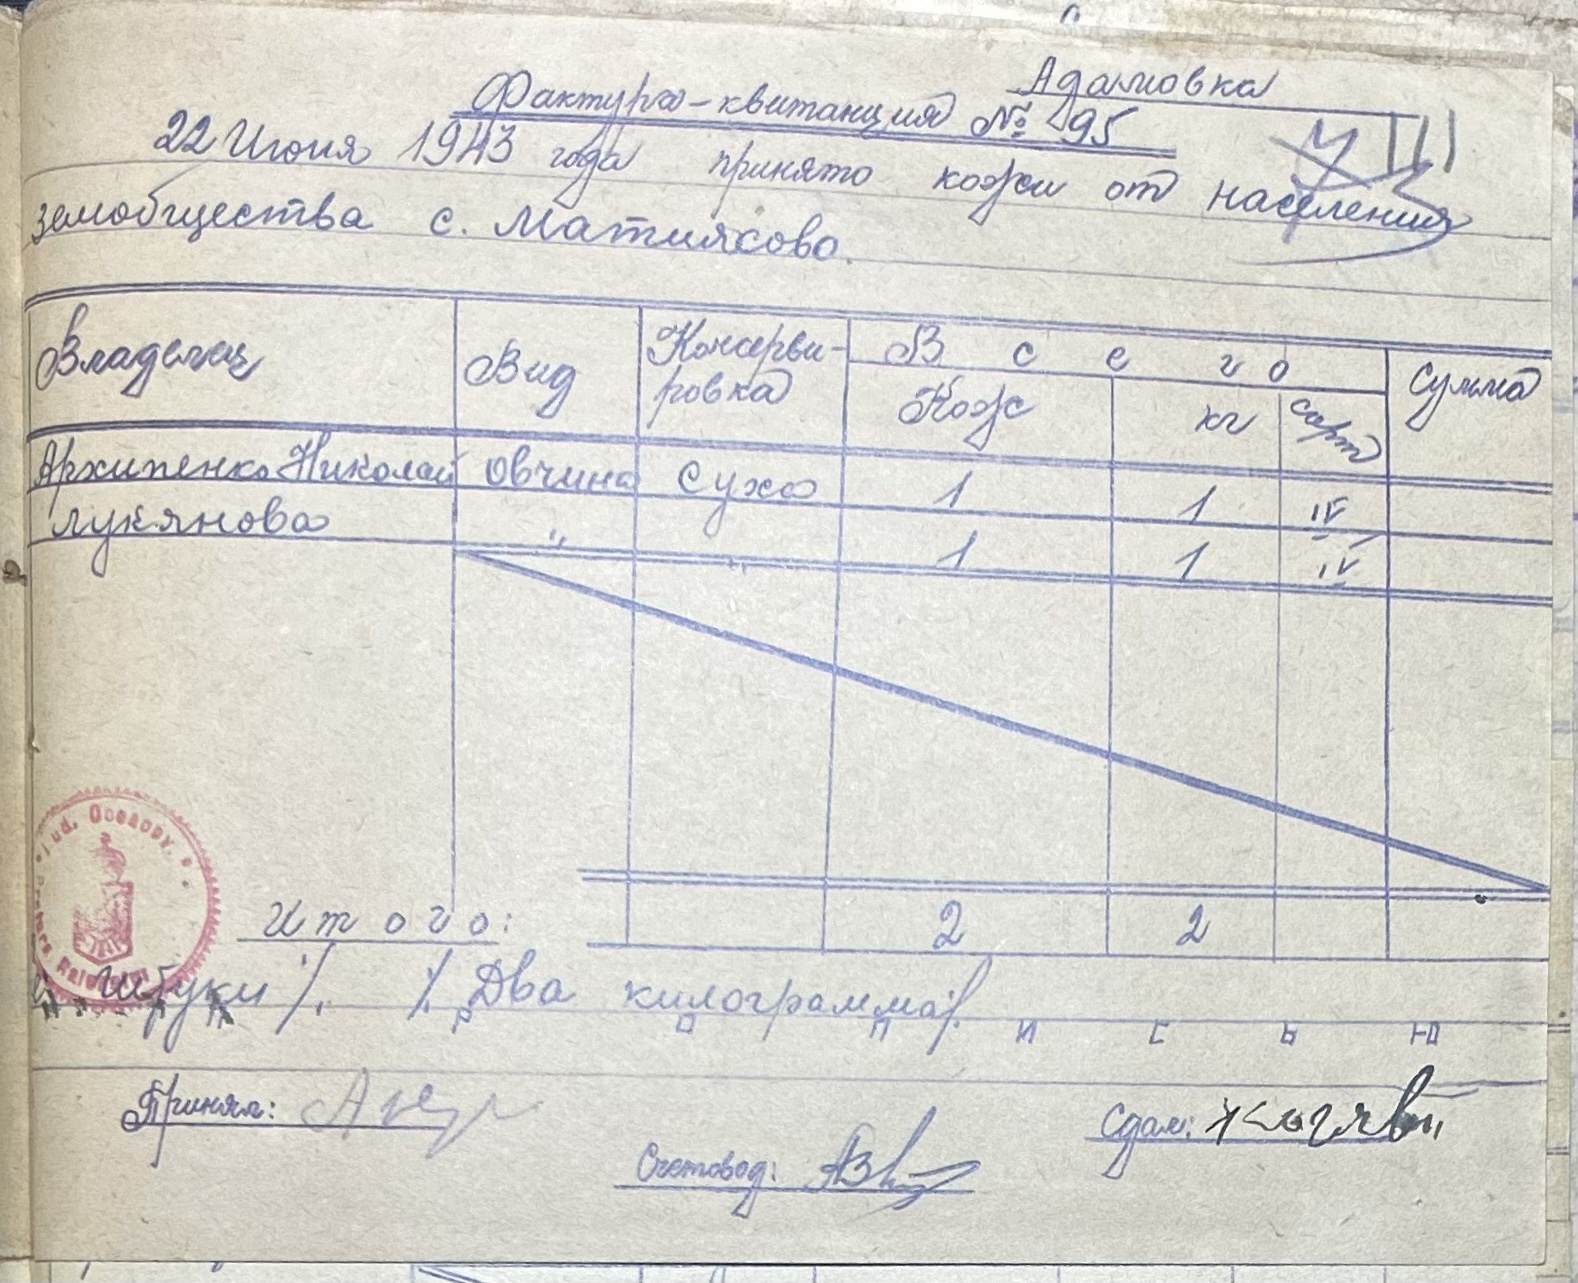 Адамовка
Фактура-квитанция № 95
III
22 Июня 1943 года принято кожи от населения
земобщества с. Матиясово.
Владелец Вид Консерви-ровка Всего Сумма
Кож кг сорт
Архипенко Николай Овчина Сухо 1 1 IV
Лукянова " " 1 1 IV
Итого: 2 2
штуки ⁒ ⁒ Два килограмма
П О Д П И С Ь Ю
Принял:
Сдал:
Счетовод:
Jud.